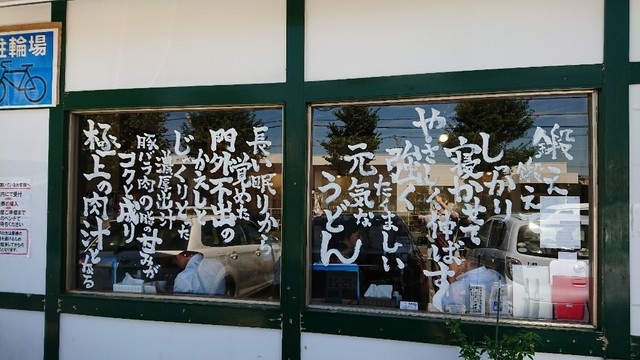 鍛え
鍛え
しっかり
寝かせて
やさしく伸ばす
強く
たくましい
元気な
うどん
長い眠りから
覚めた
門外不出の
かえしと
じっくりとった
濃厚出汁
豚バラ肉の脂の甘みが
コクと成り
極上の肉汁となる
駐輪場